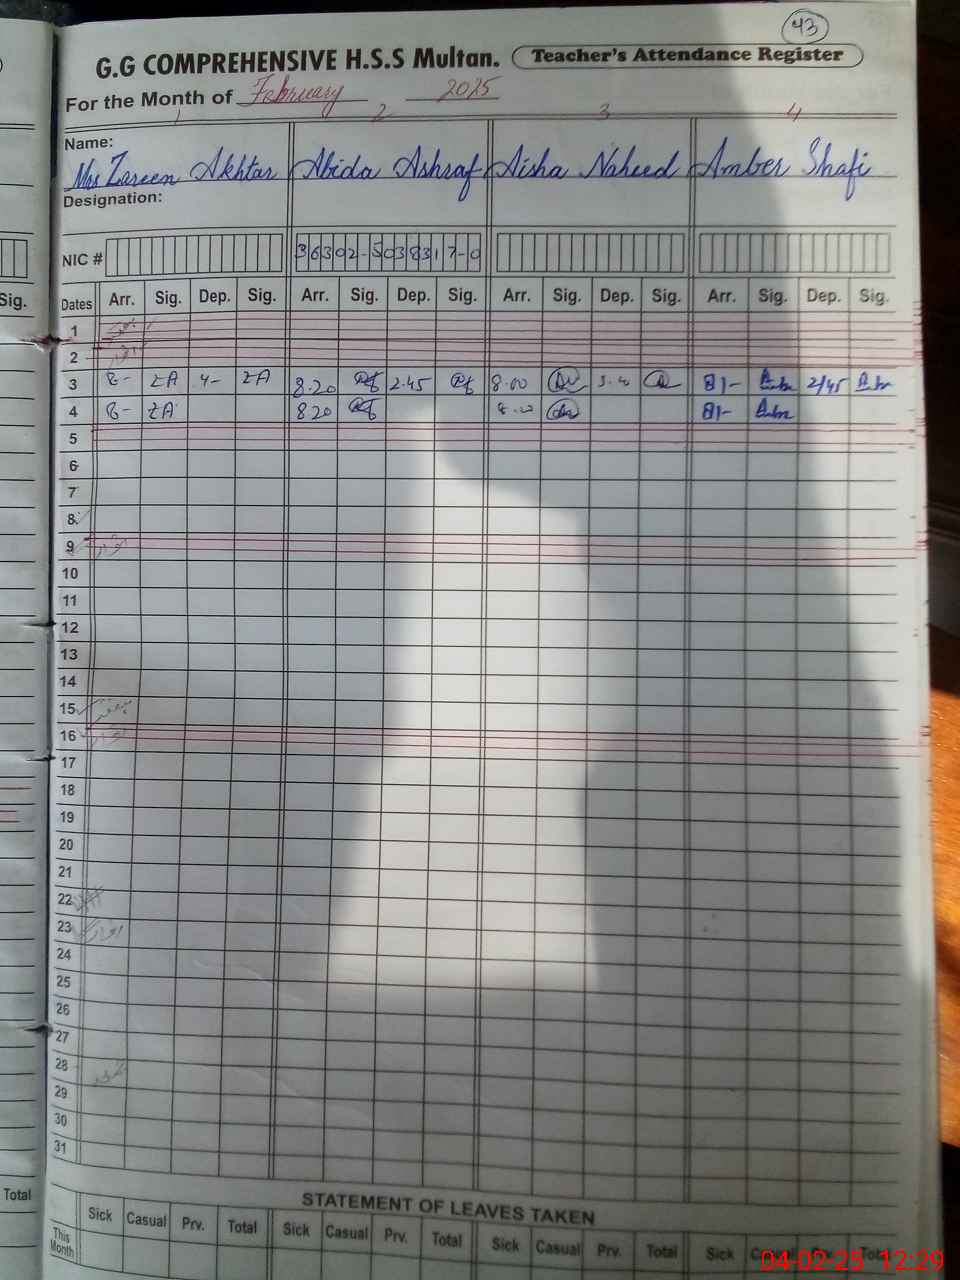 43
G.G COMPREHENSIVE H.S.S Multan. Teacher's Attendance Register
For the Month of February 2025
1 2 3 4
Name:
Mrs Zareen Akhtar Abida Ashraf Aisha Naheed Amber Shafi
Designation:
NIC # 36302-5038317-0
Sig. Dates Arr. Sig. Dep. Sig. Arr. Sig. Dep. Sig. Arr. Sig. Dep. Sig. Arr. Sig. Dep. Sig.
1 ہفتہ
2 اتوار
3 8- ZA 4- ZA 8.20 2.45 8.00 81- 2/45
4 8- ZA 820 8.00 81-
5
6
7
8
9 اتوار
10
11
12
13
14
15 ہفتہ
16 اتوار
17
18
19
20
21
22
23 اتوار
24
25
26
27
28
29
30
31
Total
STATEMENT OF LEAVES TAKEN
Sick Casual Prv. Total Sick Casual Prv. Total Sick Casual Prv. Total Sick Casual Prv. Total
This Month
04-02-25 12:29